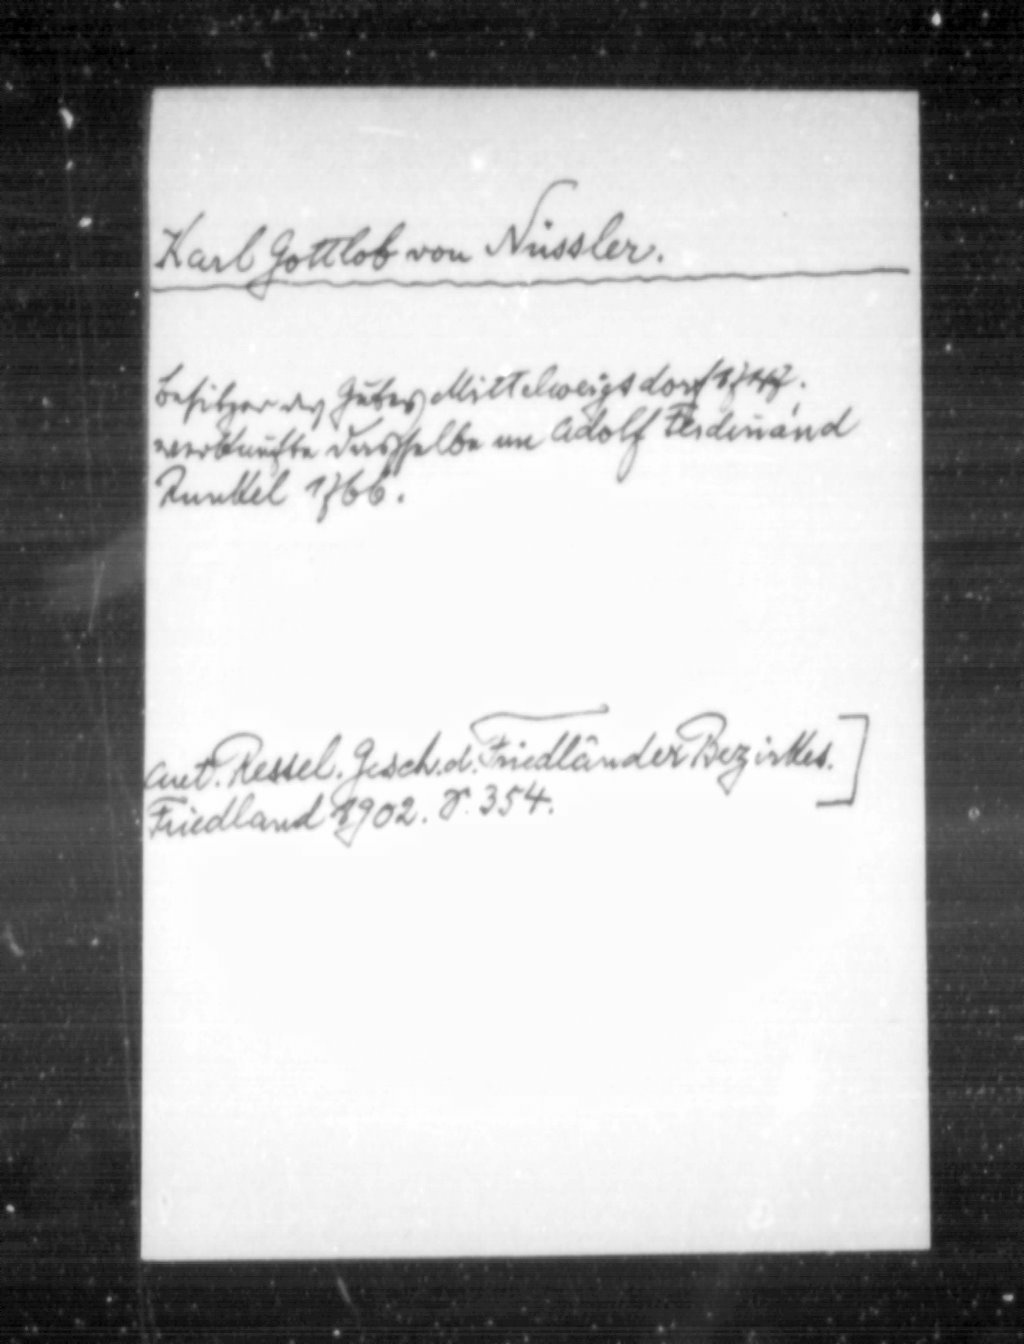 Karl Gottlob von Nüssler.
Besitzer des Gutes Mittelweigsdorf 1747.
verkaufte dasselbe an Adolf Ferdinand
Runkel 1766.
Ressel. Gesch. d. Friedländer Bezirkes.]
Friedland 1902. S. 354.